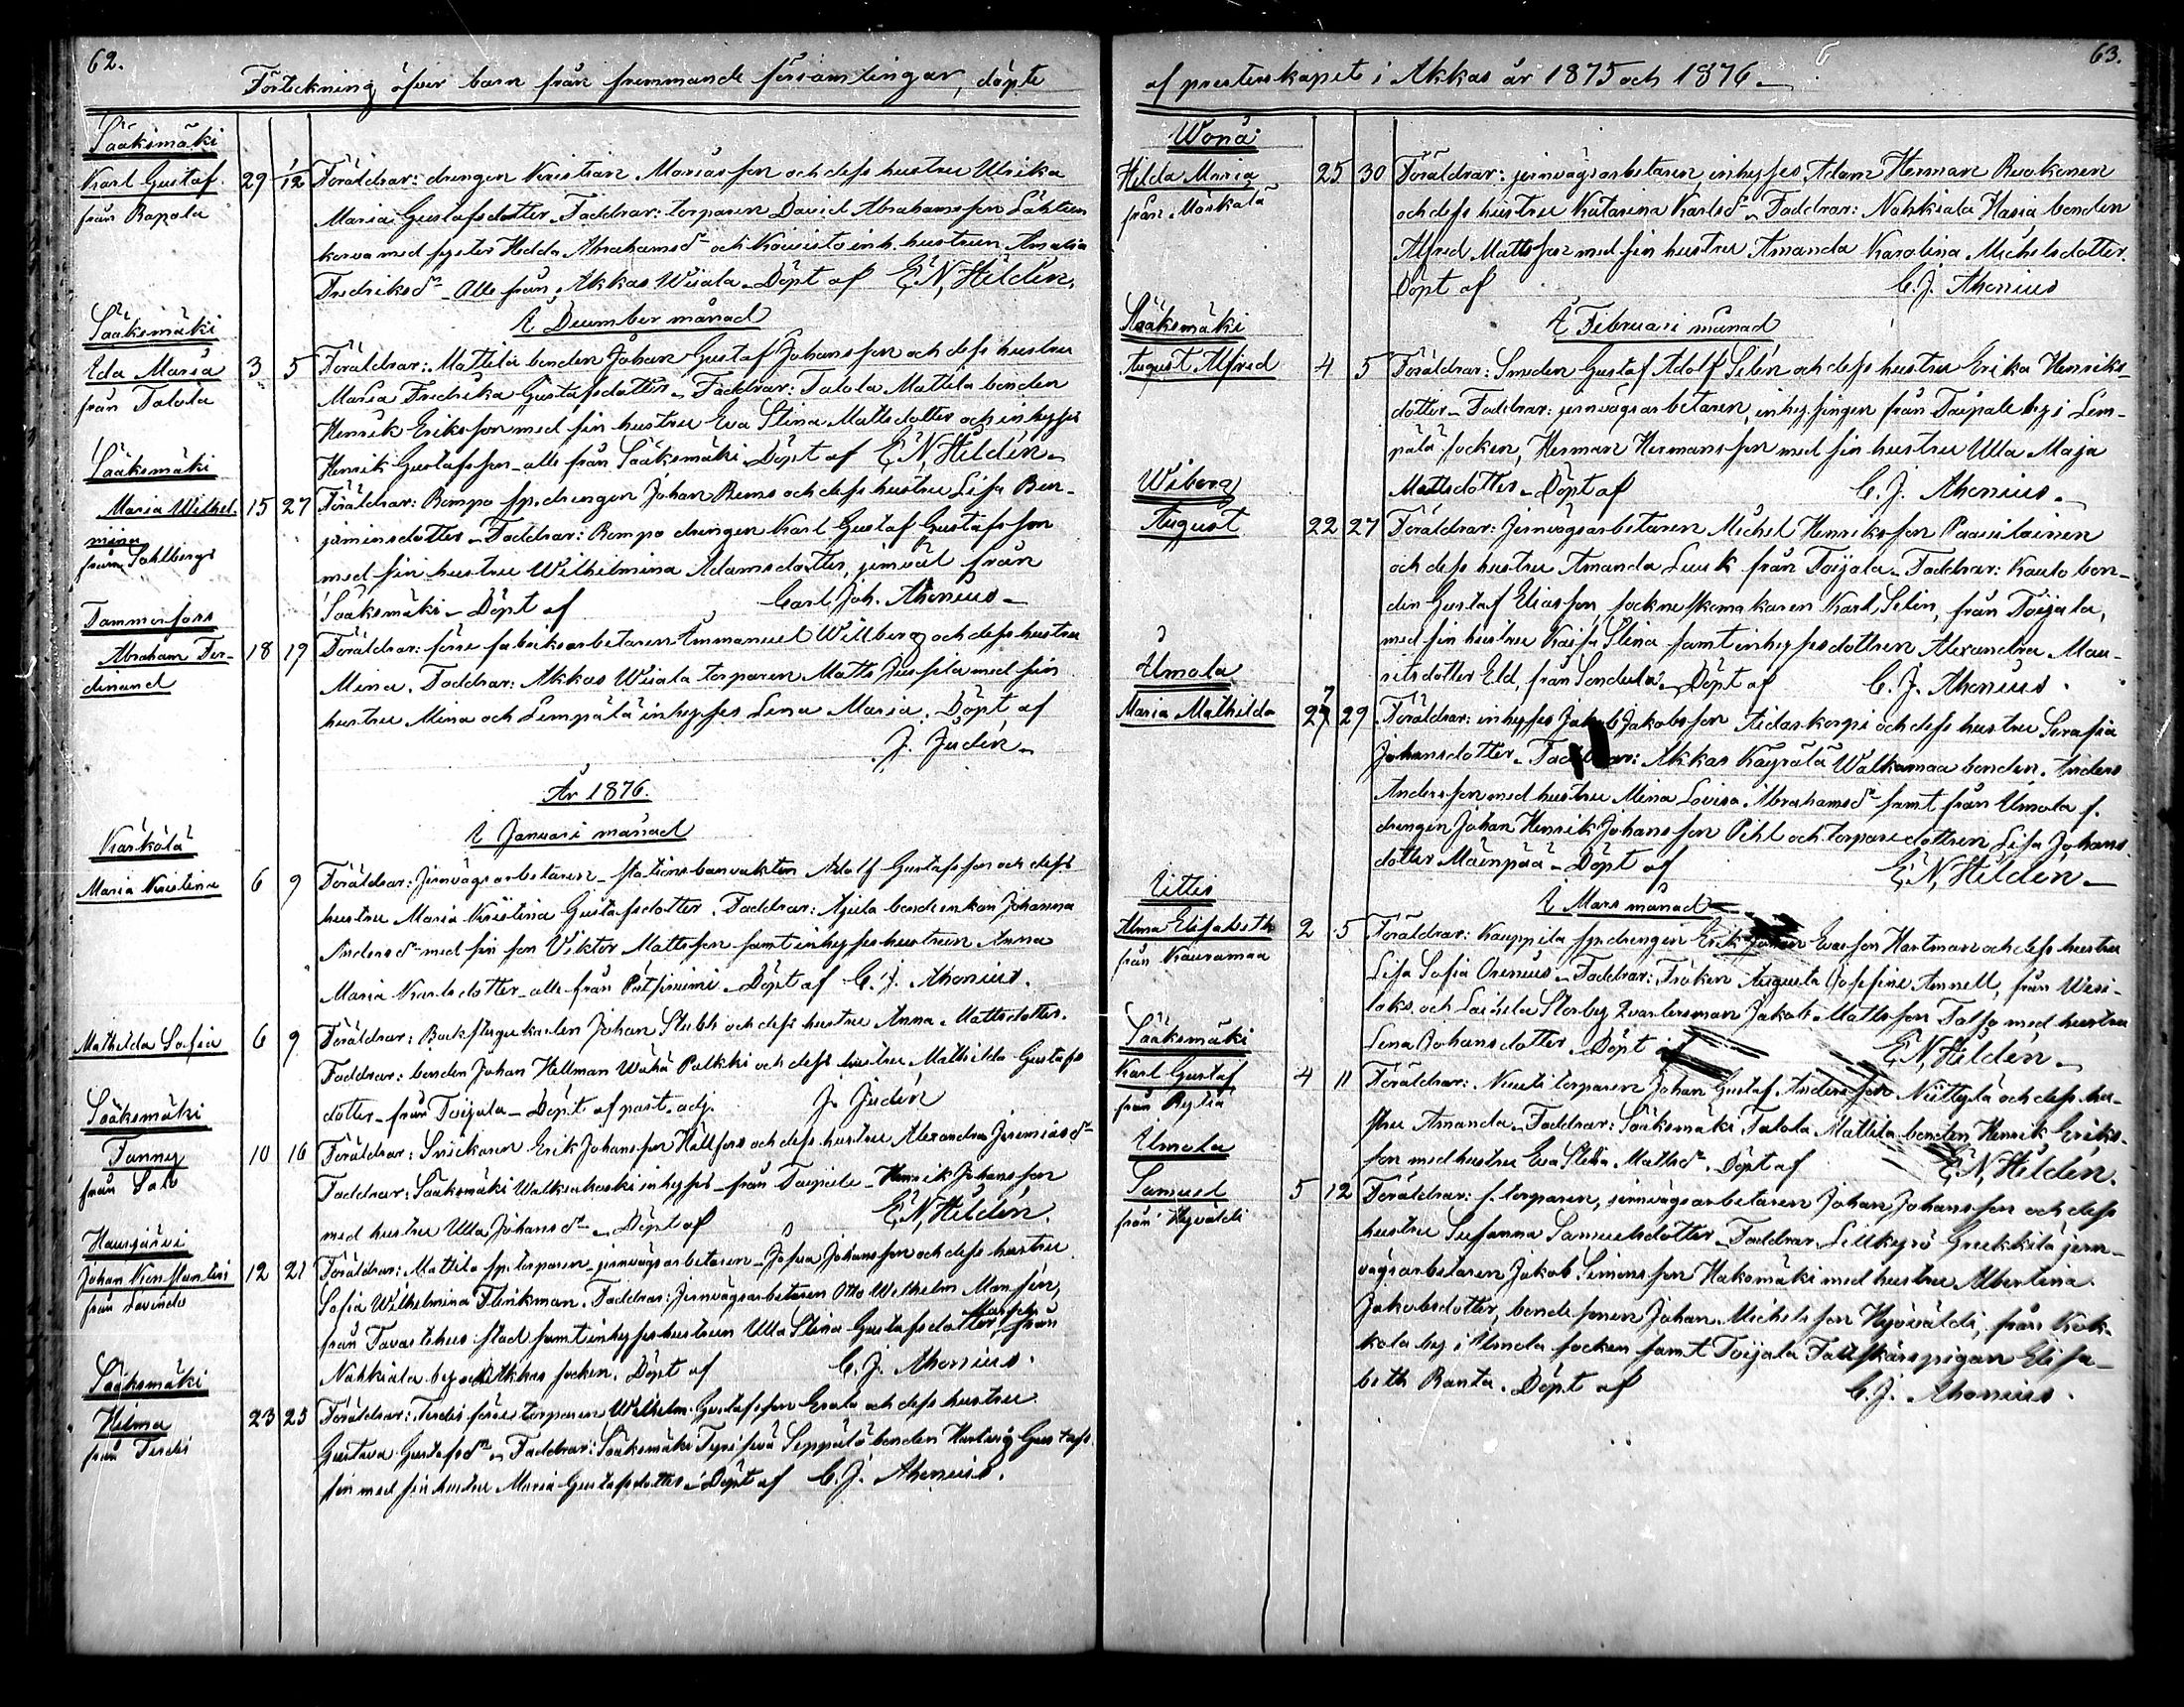 62.
Förteckning öfver barn från främmande församlingar, döpte
Sääksmäki
Karl Gustaf 29 1/12 Föräldrar: drengen Kristian Mariasson och dess hustru Ulrika
från Rapola Maria Gustafsdotter. Faddrar: torparen David Abrahamsson Lähteen
korva med syster Hedda Abrahamsdr och Kouvisto inh. hustrun Amalia
Fredriksdr - alla från Akkas Wiiala. Döpt af E. N. Hildén.
I December månad
Sääksmäki
Eda Maria 3 5 Föräldrar: Mattila bonden Johan Gustaf Johansson och dess hustru
från Talola Maria Fredrika Gustafsdotter. Faddrar: Talola Mattila bonden
Henrik Eriksson med sin hustru Eva Stina Mattsdotter och inhyses
Henrik Gustafsson - alla från Sääksmäki. Döpt af E. N. Hildén.
Sääksmäki
Maria Wilhel- 15 27 Föräldrar: Rompo sp. drengen Johan Rems och dess hustru Lisa Ben-
mina jaminsdotter. Faddrar: Rompo drengen Karl Gustaf Gustafsson
från Sahlberg med sin hustru Wilhelmina Adamsdotter, jemväl från
Sääksmäki. Döpt af Carl Joh. Ahonius.
Tammerfors
Abraham Fer- 18 19 Föräldrar: förre fabriksarbetaren Emmanuel Willberg och dess hustru
dinand Mina. Faddrar: Akkas Wiiala torparen Matts Jussila med sin
hustru Mina och Lempäälä inhyses Lena Maria. Döpt af
J. Judén.
År 1876.
I Januari månad
Kärkölä
Maria Kristina 6 9 Föräldrar: Jernvägsarbetaren - stationsbanvakten Adolf Gustafsson och dess
hustru Maria Kristina Gustafsdotter. Faddrar: bondeenkan Johanna
Andersdr med sin son Viktor Mattsson samt inhyseshustrun Anna
Maria Karlsdotter - alla från Pätsiniemi. Döpt af C. J. Ahonius.
Mathilda Sofia 6 9 Föräldrar: Backstugukarlen Johan Stubb och dess hustru Anna Mattsdotter.
Faddrar: bonden Johan Hellman Wähä Palkki och dess hustru Mathilda Gustafs
dotter - från Toijala. Döpt af past. adj. J. Judén
Sääksmäki
Fanny 10 16 Föräldrar: Snickaren Erik Johansson Hällfors och dess hustru Alexandra Jeremiasdr
från Salo Faddrar: Sääksmäki Walkeakoski inhyses - från Taipale - Henrik Johansson
med hustru Ulla Johansdr. Döpt af E. N. Hildén.
Hausjärvi
Johan Konstantin 12 21 Föräldrar: Mattila sp. torparen jernvägsarbetaren Josua Johansson och dess hustru
från Sofia Wilhelmina Flinkman. Faddrar: Jernvägsarbetaren Otto Wilhelm Mansén,
från Tavastehus stad samt inhyseshustrun Ulla Stina Gustafsdotter, från
Nahkiala by och Akkas socken. Döpt af C. J. Ahonius.
Sääksmäki
Helma 23 25 Föräldrar: Terdis förre torparen Wilhelm Gustafsson Erola och dess hustru
från Terdis Gustava Gustafsdr. Faddrar: Sääksmäki Seppälä bonden Hartvig Gustafs
son med sin hustru Maria Gustafsdotter. Döpt af C. J. Ahonius.
63.
af presterskapet i Akkas år 1875 och 1876.
Wånå
Hilda Maria 25 30 Föräldrar: jernvägsarbetaren, inhyses Adam Herman Ruokonen
från Måskala och dess hustru Katarina Karlsdr. Faddrar: Nahkiala Hasia bonden
Alfred Mattsson med sin hustru Amanda Karolina Michelsdotter.
Döpt af C. J. Ahonius
I Februari månad
Sääksmäki
August Alfred 4 5 Föräldrar: Smeden Gustaf Adolf Selén och dess hustru Erika Henriks-
dotter. Faddrar: jernvägsarbetaren, inhysingen från Taipale by i Lem-
päälä socken, Herman Hermansson med sin hustru Ulla Maja
Mattsdotter. Döpt af C. J. Ahonius.
Wiborg
August 22 27 Föräldrar: Jernvägsarbetaren Michel Henriksson Paasilainen
och dess hustru Amanda Luuk från Toijala. Faddrar: Kauto bon-
den Gustaf Eliasson, sockneskomakaren Karl Selin, från Toijala,
med sin hustru Kaisa Stina samt inhysesdottren Alexandra Mau-
ritsdotter Eld, från Sondula. Döpt af C. J. Ahonius.
Urnola
Maria Mathilda 27 29 Föräldrar: inhyses Jakob Jakobsson Aidaskorpi och dess hustru Serafia
Johansdotter. Faddrar: Akkas Käyrälä Walkamaa bonden Anders
Andersson med hustru Mina Lovisa Abrahamsdr samt från Urnola f.
drengen Johan Henrik Johansson Pihl och torparedottren Lisa Johans
dotter Mäenpää. Döpt af E. N. Hildén.
I Mars månad
Iittis
Alma Elisabeth 2 5 Föräldrar: Kauppila sp. drengen Erik Johan Evasson Hartman och dess hustru
från Kauramaa Lisa Sofia Orenius. Faddrar: Fröken Augusta Josefine Amnell, från Wesi-
laks och Laihela Storby 2 varlersman Jakob Mattsson Talso med hustru
Lena Johansdotter. Döpt af E. N. Hildén.
Sääksmäki
Karl Gustaf 4 11 Föräldrar: Nuuti torparen Johan Gustaf Andersson Niittylä och dess hu-
från Rytiä stru Amanda. Faddrar: Sääksmäki Talola Mattila bonden Henrik Eriks-
son med hustru Eva Stina Mattsdr. Döpt af E. N. Hildén.
Urnola
Samuel 5 12 Föräldrar: f. torparen, jernvägsarbetaren Johan Johansson och dess
från Hyöväldi hustru Susanna Samuelsdotter. Faddrar: Lillkyrö Grekkilä jern-
vägsarbetaren Jakob Simonsson Hakomäki med hustru Albertina
Jakobsdotter, bondesonen Johan Michelsson Hyöväldi, från Kok-
kola by i Urnola socken samt Toijala Fältskärspigan Elisa-
beth Ranta. Döpt af C. J. Ahonius.